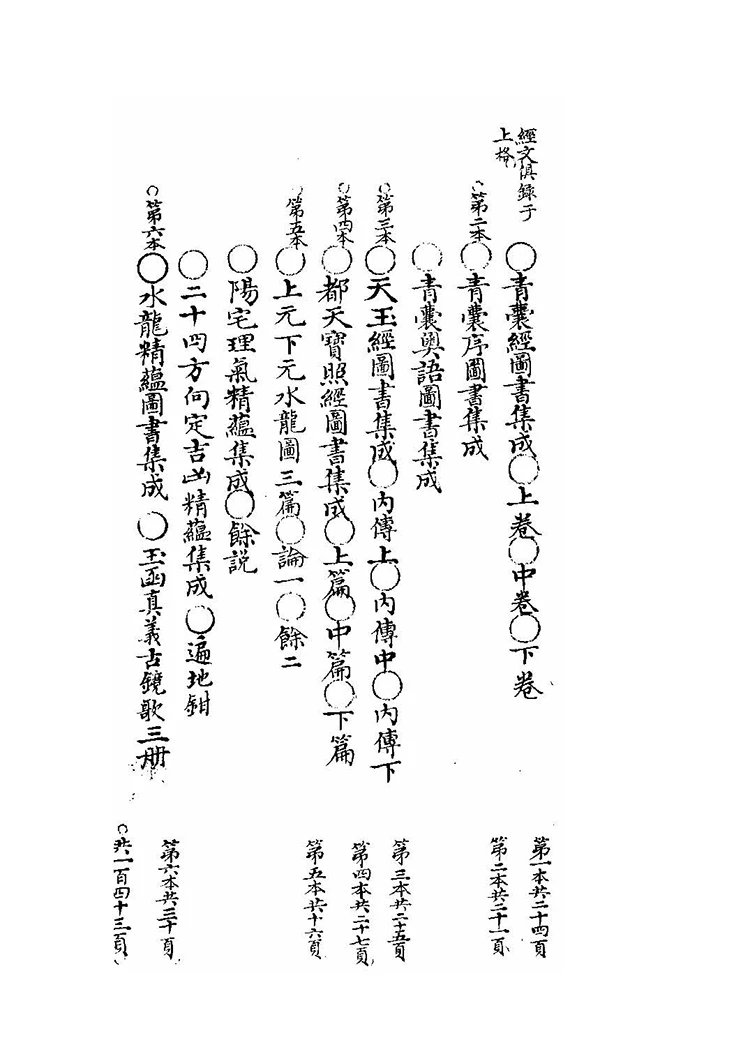 經文俱錄于
上格
○青囊經圖書集成○上卷○中卷○下卷
○第二本○青囊序圖書集成
○青囊奧語圖書集成
○第三本○天玉經圖書集成○內傳上○內傳中○內傳下
○第四本○都天寶照經圖書集成○上篇○中篇○下篇
○第五本○上元下元水龍圖三篇○論一○餘二
○陽宅理氣精蘊集成○餘説
○二十四方向定吉凶精蘊集成○遍地鉗
○第六本○水龍精蘊圖書集成○玉函真義古鏡歌三册
第一本共二十四頁
第二本共二十一頁
第三本共二十五頁
第四本共二十七頁
第五本共十六頁
第六本共三十頁
○共一百四十三頁